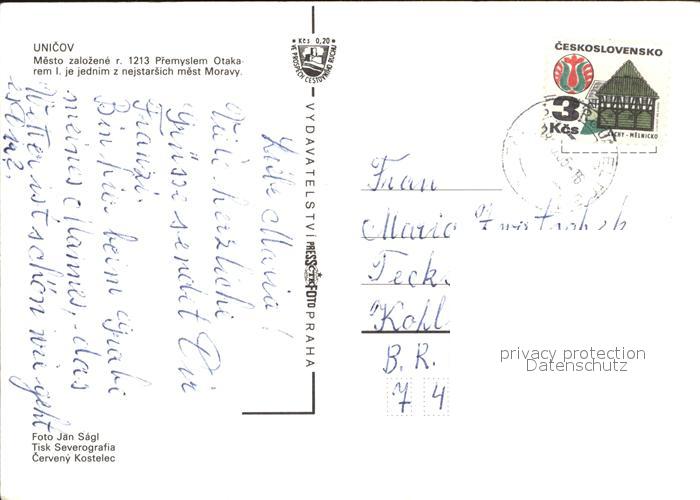 UNIČOV
Město založené r. 1213 Přemyslem Otaka-
rem I. je jedním z nejstarších měst Moravy.
Kčs 0,20
VE PROSPĚCH CESTOVNÍHO RUCHU
Liebe Maria!
Viele herzliche
Grüsse sendet Dir
Franzi.
Bin hier beim Grabe
meines Mannes, das
Wetter ist schön wie geht
Foto Ján Ságl
Tisk Severografia
Červený Kostelec
VYDAVATELSTVÍ PRESSFOTO PRAHA
ČTK
ČESKOSLOVENSKO
3
Kčs
ČECHY - MĚLNICKO
Frau
Maria
Teck
Kohl
B. R.
7 4
privacy protection
Datenschutz